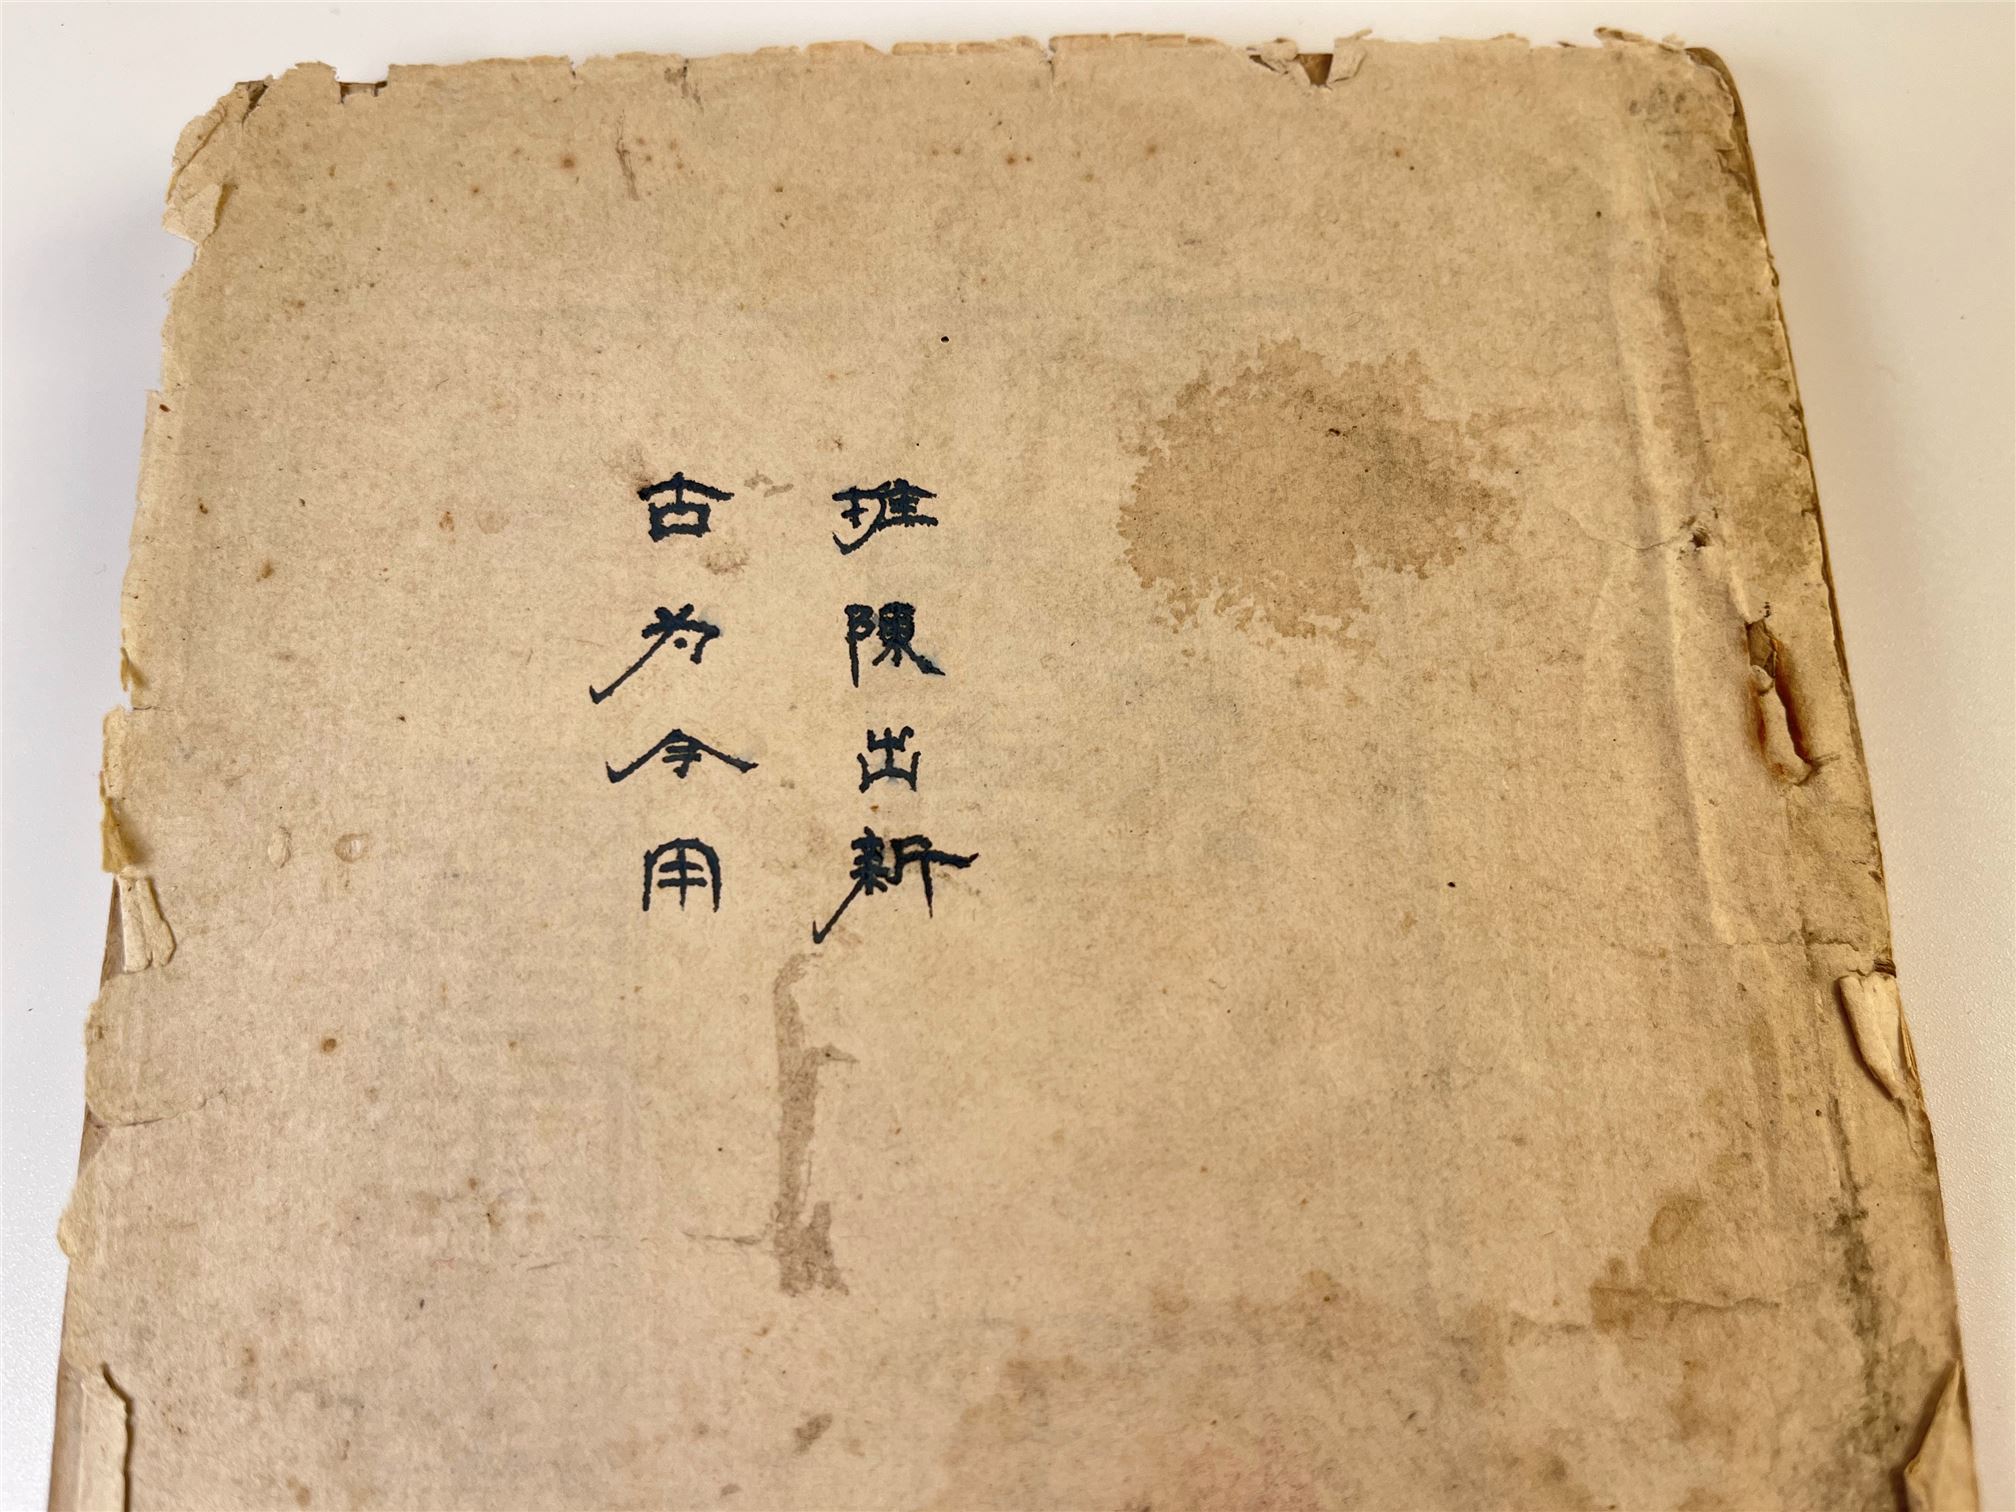 推陳出新
古为今用